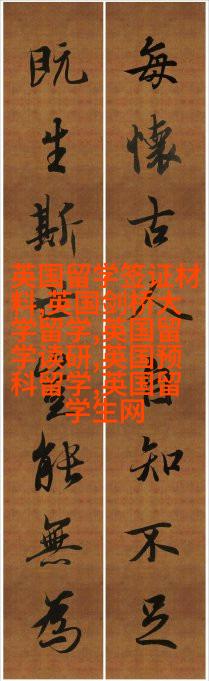 每懷古人自知不足
既生斯世豈能無為
英国留学签证材
料,英国剑桥大
学留学,英国留
学读研,英国预
科留学,英国留
学生网